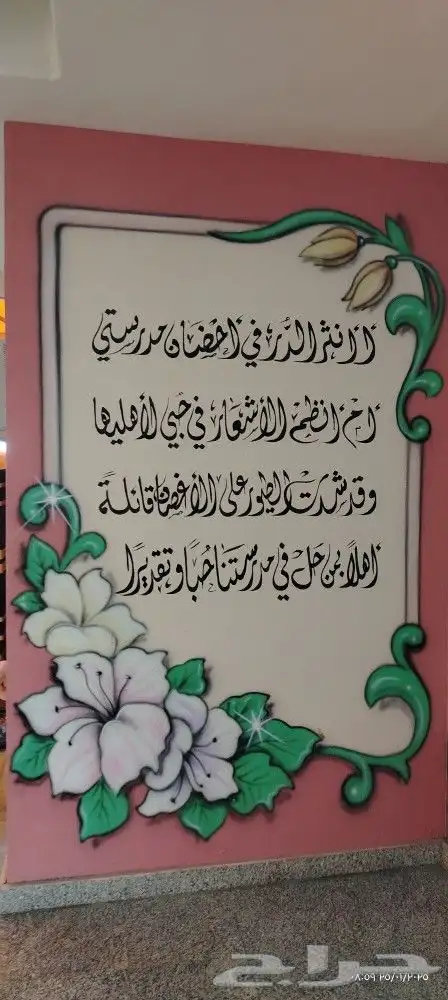 أأنثر الدُّر في أحضان مدرستي
أم أنظم الأشعار في حبي لأهليها
وقد شدت الطيور على الأغصان قائلةً
أهلاً بمن حل في مدرستنا حُباً وتقديرا
حراج
٠٨:٥٩ ٢٥/٠١/٢٠٢٥